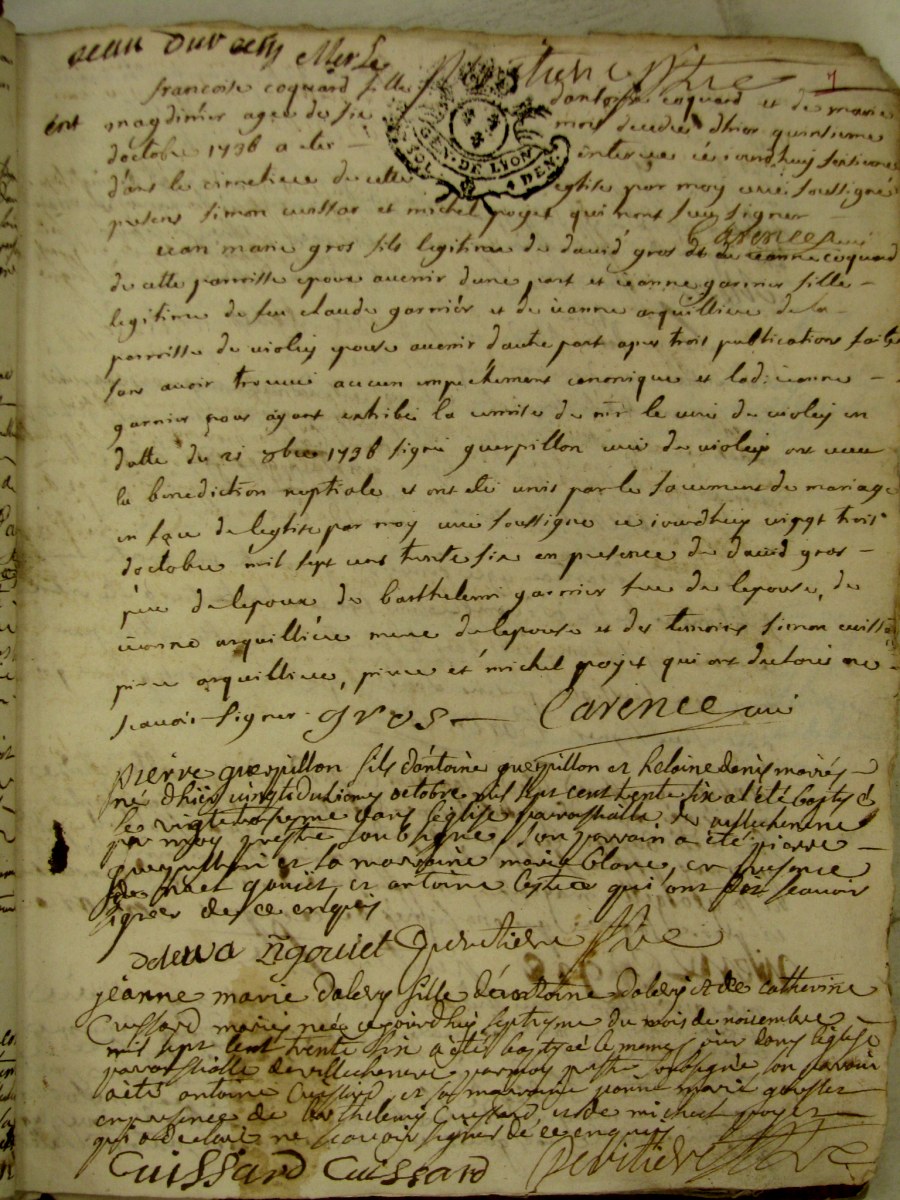 jean duv
francoise coquard fille d'antoine coquard et de marie
magdinier agee de six mois decedée dhier quinsieme
doctobre 1736 a ete enterree ce jourdhuy seisieme
GEN. DE LYON
SOL
DEN.
dans le cimetiere de cette eglise par moy curé soussigné
presens simon cuissar et michel poyet qui n'ont sceu signer
Carence curé
jean marie gros fils legitime de david gros et de jeanne coquard
de cette parroisse epoux avenir dune part et jeanne garnier fille
legitime de feu claude garnier et de jeanne arquilliere de la
parroisse de violey epouse avenir dautre part apres trois publications faites
sans avoir trouvé aucun empeschement canonique et lad. jeanne
garnier nous ayant exhibé la remise de mr le curé de violey en
datte du 21 8bre 1736 signé guerpillon curé de violey ont receu
la benediction nuptiale et ont été unis par le sacrement de mariage
en face de leglise par moy curé soussigné ce jourdhuy vingt trois
doctobre mil sept cens trente six en presence de david gros
pere de lepoux de barthelemi garnier frere de lepouse, de
jeanne arquilliere mere de lepouse et des temoins simon cuissar
pierre arquilliere, pierre et michel poyet qui ont declaré ne
scavoir signer gros Carence curé
pierre guerpillon fils d'antoine guerpillon et helaine denis mariés
né dhier vingt deuxieme octobre mil sept cent trente six a été baptisé
le vingt troisieme dans l'eglise paroissialle de villechenene
par moy prestre soubsigné, son parrain a été pierre
guerpillon et la marraine marie blanc, en presence
de gouiet et antoine qui ont dit scavoir
signer de ce enquis
gouiet
jeanne marie dalery fille d'antoine dalery et de catherine
Cuissard mariés née ce jourdhuy septiesme du mois de novembre
mil sept cent trente six a été baptisé le meme jour dans l'église
paroissialle de villechenene par moy prestre soussigné son parrain
a été antoine Cuissard et sa marraine jeanne marie
en presence de barthelemy Cuissard et de michel poyet
qui a declaré ne scavoir signer de ce enquis
Cuissard Cuissard